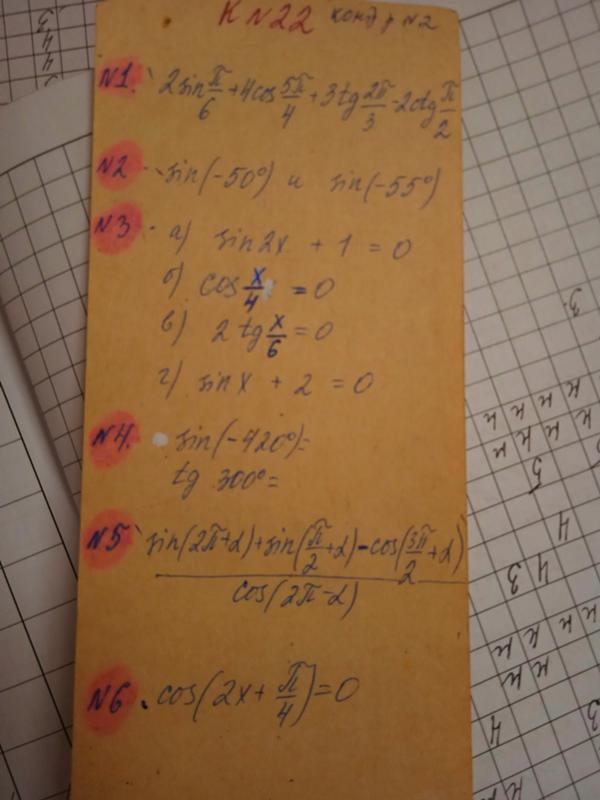 К №22 контр №2
№1. 2sin π/6 + 4cos 5π/4 + 3tg 2π/3 - 2ctg π/2
№2 sin(-50°) и sin(-55°)
№3. а) sin2x + 1 = 0
б) cos x/4 = 0
в) 2 tg x/6 = 0
г) sinx + 2 = 0
№4. sin(-420°)=
tg 300°=
№5 (sin(2π+α)+sin(π/2+α)-cos(3π/2+α)) / cos(2π-α)
№6. cos(2x+π/4)=0